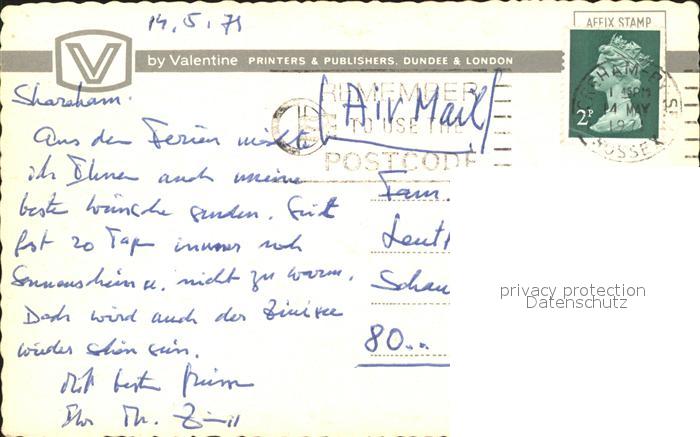 14.5.71
AFFIX STAMP
by Valentine PRINTERS & PUBLISHERS, DUNDEE & LONDON
REMEMBER
TO USE THE
POSTCODE
[Air Mail]
2P
14 MAY
SUSSEX
Shoreham.
Aus den Ferien möchte
ich Ihnen auch meine
beste Wünsche senden. Seit
fast 20 Tagen immer noch
Sonnenschein u. nicht zu warm.
Doch wird auch der
wieder schön sein.
Mit besten Grüssen
Ihr Th.
Fam.
Leut
Schau
80..
privacy protection
Datenschutz